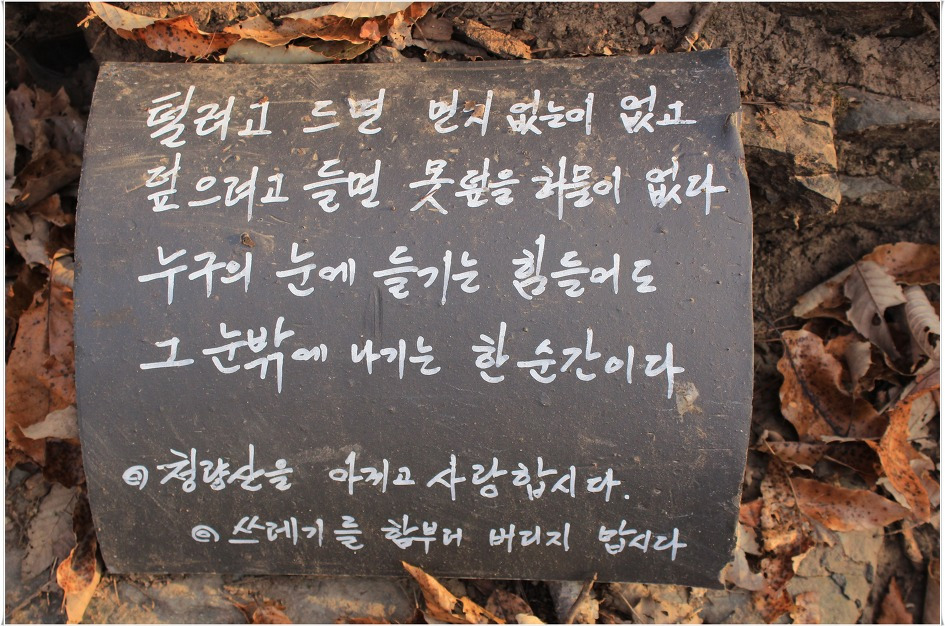 털려고 드면 먼지 없는이 없고
덮으려고 들면 못덮을 허물이 없다
누구의 눈에 들기는 힘들어도
그 눈밖에 나기는 한 순간이다
청량산을 아끼고 사랑합시다.
쓰레기를 함부러 버리지 맙시다